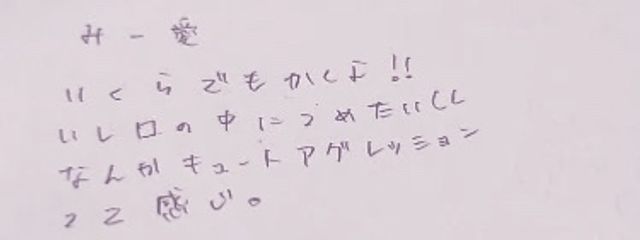 みー愛
いくらでもかくよ!!
いし口の中につめたいくし
なんかキュートアグレッション
って感じ。